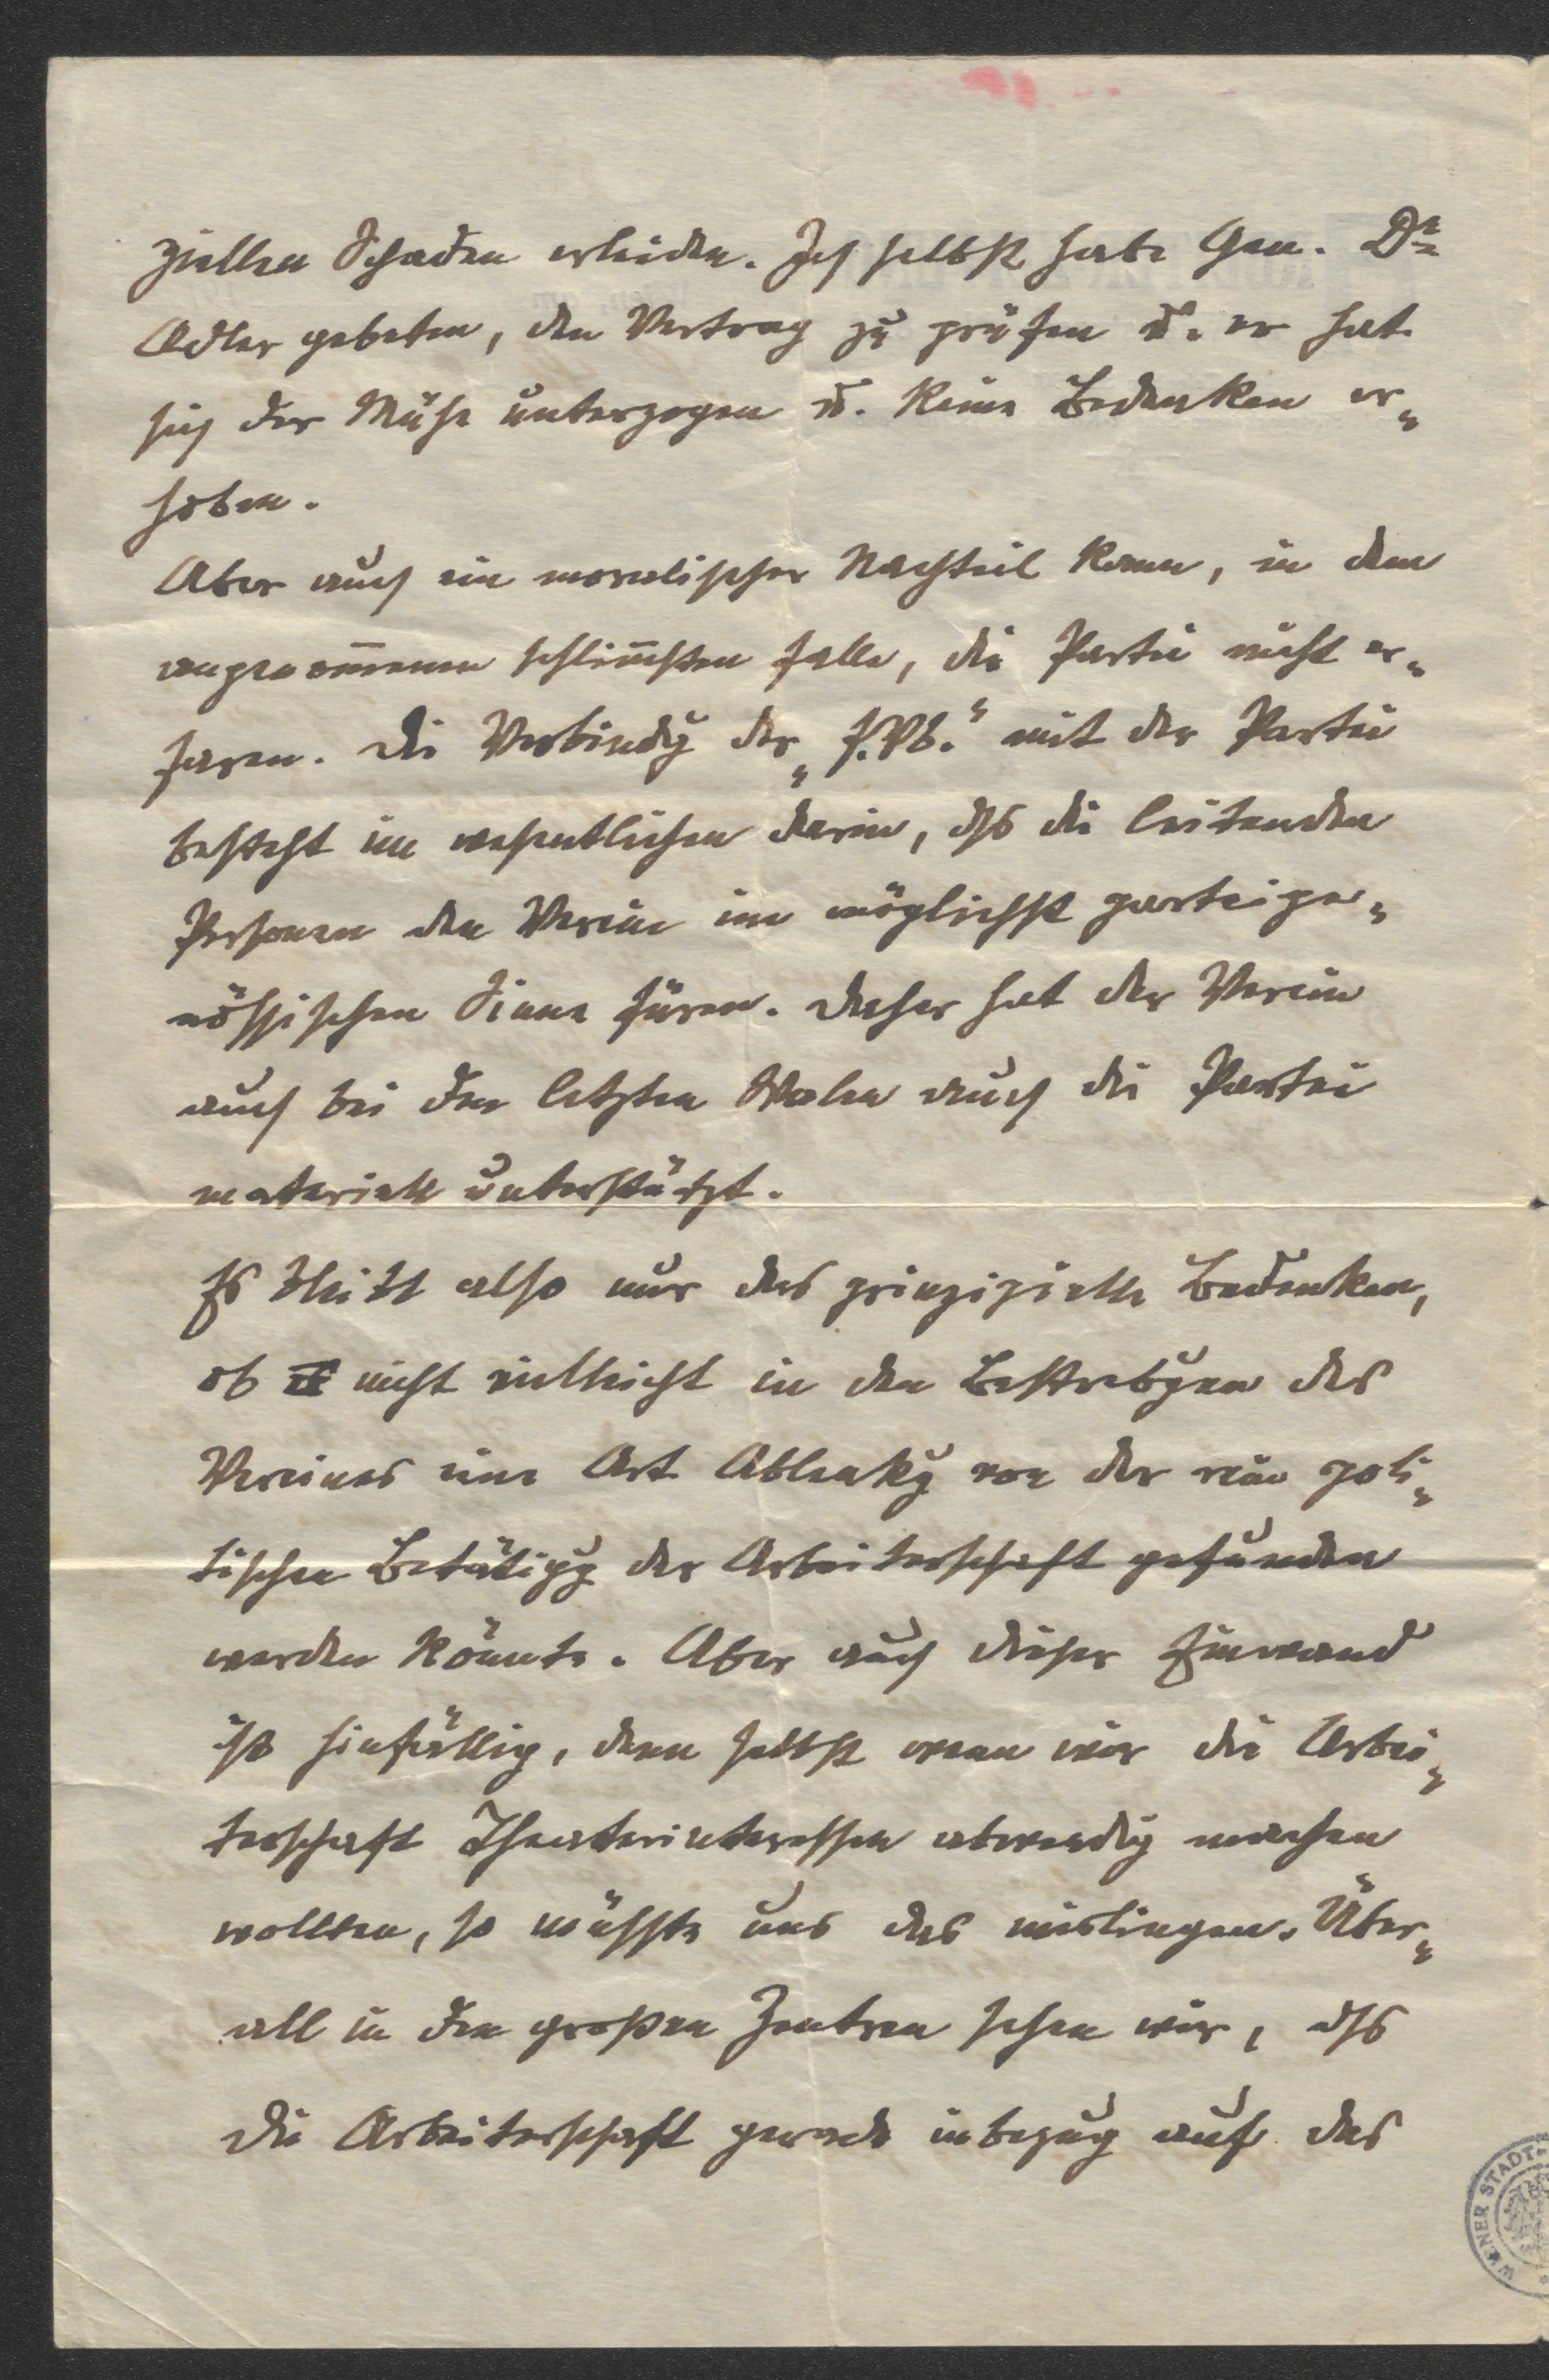 ziellen Schaden erleiden. Ich selbst habe Gen. Dr
Adler gebeten, den Vertrag zu prüfen u. er hat
sich der Mühe unterzogen u. keine Bedenken er„
hoben.
Aber auch ein moralischer Nachteil kann, in dem
angenom̅enen schlim̅sten Falle, die Partei nicht er„
faren. Die Verbindg der „f.Vb.“ mit der Partei
besteht im wesentlichen darin, dſs die leitenden
Personen den Verein im möglichst parteige„
nössischen Sinne füren. Daher hat der Verein
auch bei den letzten Walen auch die Partei
materiell unterstützt.
Es bleibt also nur das prinzipielle Bedenken,
ob nicht vielleicht in den Bestrebgen des
Vereines eine Art Ablenkg von der rein poli„
tischen Betätigg der Arbeiterschaft gefunden
werden könnte. Aber auch dieser Einwand
ist hinfällig, denn selbst wenn wir die Arbei„
terschaft Theaterinteressen abwendig machen
wollten, so müsste uns das mislingen. Über„
all in den großen Zentren sehen wir, dſs
die Arbeiterschaft gerade inbezug auf das
WIENER STADT-